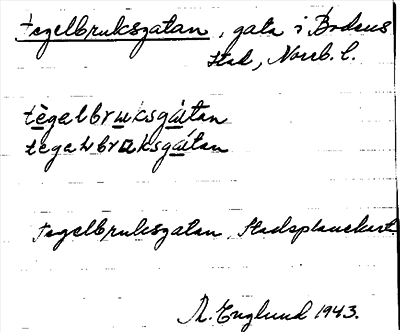 Tegelbruksgatan, gata i Bodens
stad, Norrb. l.
tègəlbrɯksgátan
tègəlbrɯksgátan
Tegelbruksgatan, Stadsplanekart.
R. Englund 1943.